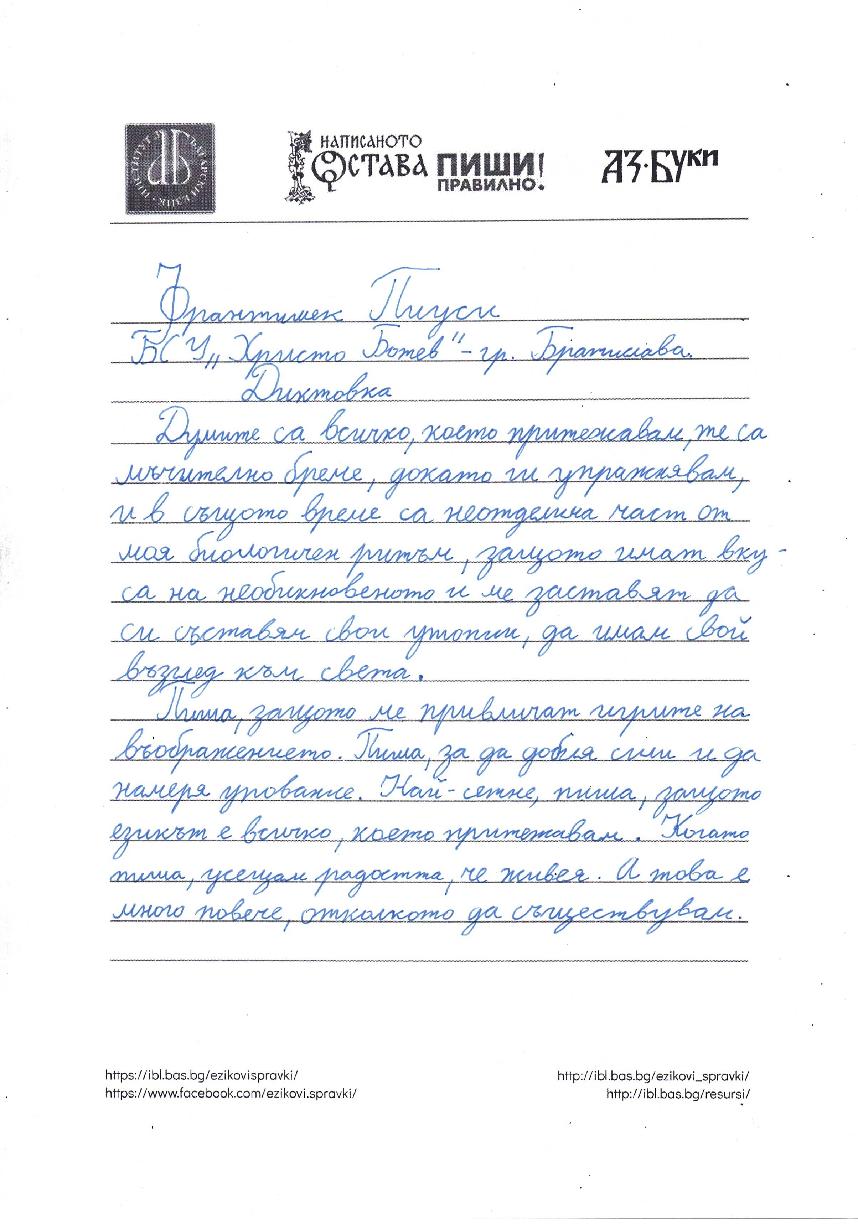 ИНСТИТУТ ЗА БЪЛГАРСКИ ЕЗИК
НАПИСАНОТО
ОСТАВА ПИШИ!
ПРАВИЛНО.
АЗ·БУКИ
Франтишек Пиуси
БСУ „Христо Ботев" - гр. Братислава.
Диктовка
Думите са всичко, което притежавам, те са
мъчително бреме, докато ги упражнявам,
и в същото време са неотделима част от
моя биологичен ритъм, защото имат вку-
са на необикновеното и ме заставят да
си съставям свои утопии, да имам свой
възглед към света.
Пиша, защото ме привличат игрите на
въображението. Пиша, за да добия сили и да
намеря упование. Най-сетне, пиша, защото
езикът е всичко, което притежавам. Когато
пиша, усещам радостта, че живея. А това е
много повече, отколкото да съществувам.
https://ibl.bas.bg/ezikovispravki/ http://ibl.bas.bg/ezikovi_spravki/
https://www.facebook.com/ezikovi.spravki/ http://ibl.bas.bg/resursi/